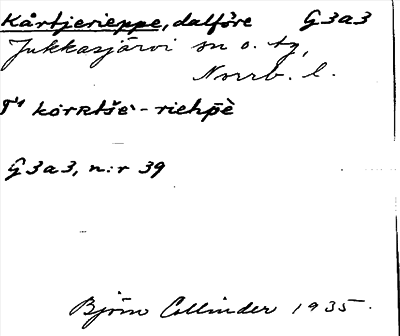 Kårtjerieppe, dalföre G3a3
Jukkasjärvi sn o. tg,
Norrb. l.
kɷrʀtše`-riehpè
G3a3, n:r 39
Björn Collinder 1935.